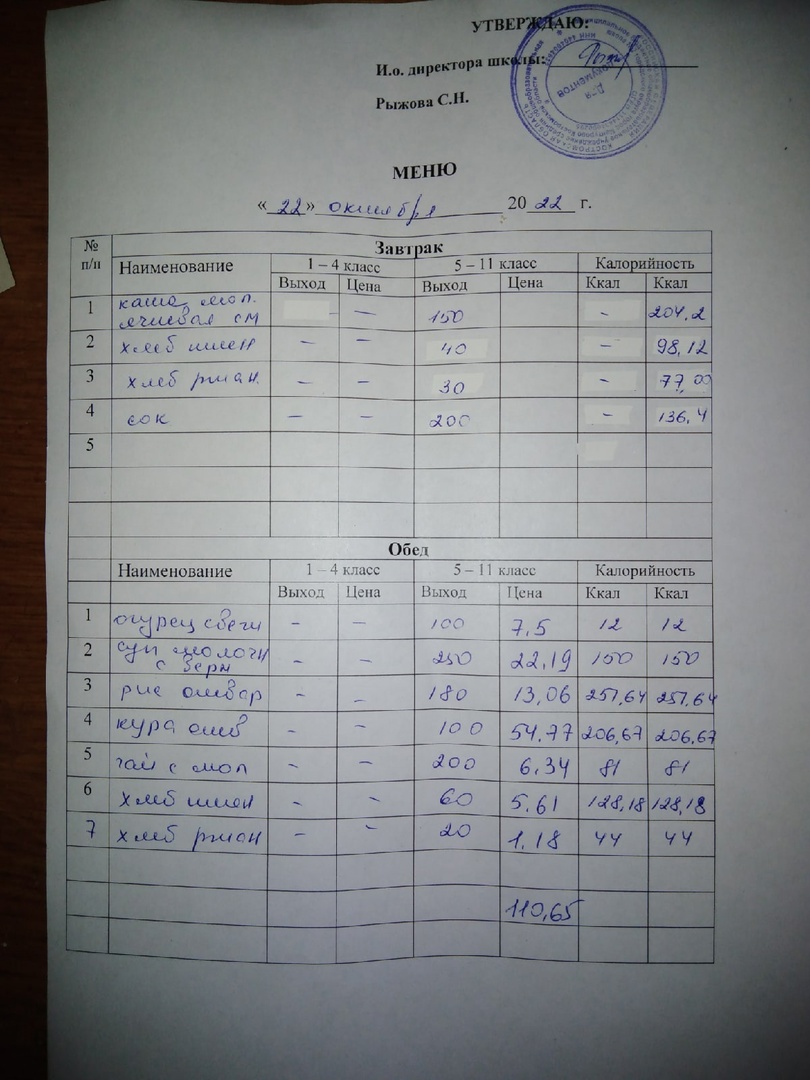 УТВЕРЖДАЮ:
И.о. директора школы:
Рыжова С.Н.
ДЛЯ ДОКУМЕНТОВ
МЕНЮ
«22» октября 2022 г.
№ п/п Завтрак
Наименование 1 – 4 класс 5 – 11 класс Калорийность
Выход Цена Выход Цена Ккал Ккал
1 каша мол. ячневая см - — 150 - 204,2
2 хлеб пшен — — 40 - 98,12
3 хлеб ржан. — — 30 - 77,00
4 сок — — 200 - 136,4
5
Обед
Наименование 1 – 4 класс 5 – 11 класс Калорийность
Выход Цена Выход Цена Ккал Ккал
1 огурец свеж - - 100 7,5 12 12
2 суп молочн с верм - - 250 22,19 150 150
3 рис отвар - - 180 13,06 257,64 257,64
4 кура отв - - 100 54.77 206,67 206,67
5 чай с мол - - 200 6,34 81 81
6 хлеб пшен - - 60 5,61 128,18 128,18
7 хлеб ржан - - 20 1,18 44 44
110,65